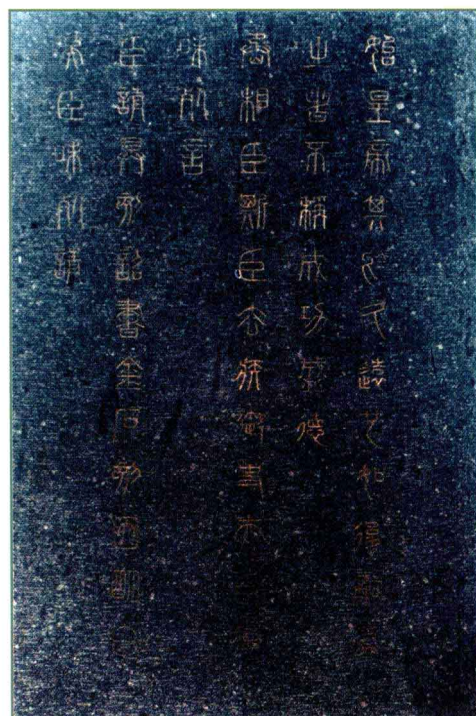 始皇帝其於久遠也如後嗣為
之者不稱成功盛德
丞相臣斯臣去疾御史夫
昧死言
臣請具刻詔書金石刻因明白
矣臣昧死請